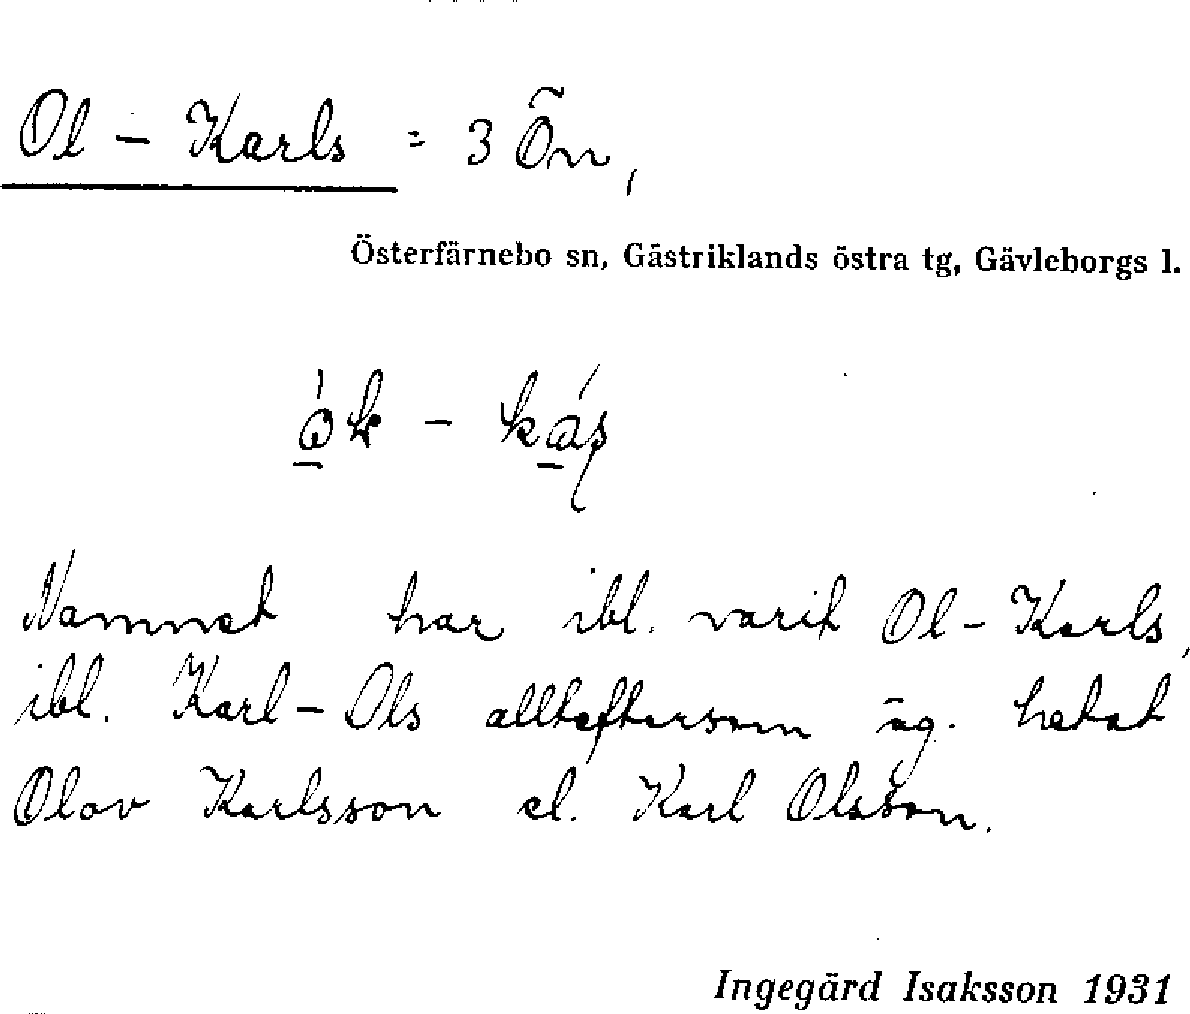 Ol - Karls = 3 Ön,
Österfärnebo sn, Gästriklands östra tg, Gävleborgs l.
Namnet har ibl. varit Ol - Karls,
ibl. Karl - Ols allteftersom äg. hetat
Olov Karlsson el. Karl Olsson.
Ingegärd Isaksson 1931